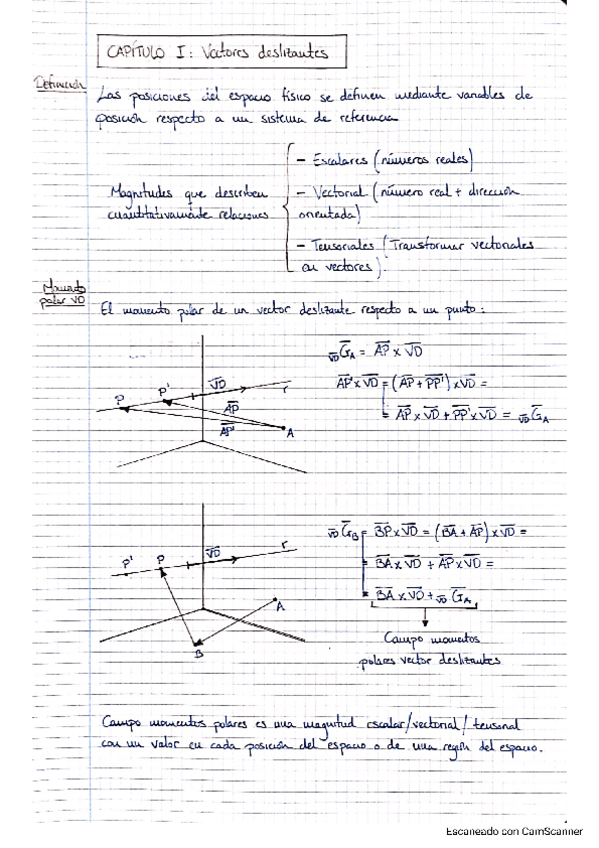 CAPÍTULO I: Vectores deslizantes
Definición
Las posiciones del espacio físico se definen mediante variables de
posición respecto a un sistema de referencia
- Escalares (números reales)
Magnitudes que describen
cuantitativamente relaciones
- Vectorial (número real + dirección
orientada)
- Tensoriales (Transformar vectoriales
en vectores).
Momento
polar VD
El momento polar de un vector deslizante respecto a un punto:
VD G̅A = A̅P̅ x V̅D̅
A̅P̅' x V̅D̅ = (A̅P̅ + P̅P̅') x V̅D̅ =
= A̅P̅ x V̅D̅ + P̅P̅' x V̅D̅ = VD G̅A
P P' V̅D̅ r
A̅P̅
A̅P̅' A
VD G̅B = B̅P̅ x V̅D̅ = (B̅A̅ + A̅P̅) x V̅D̅ =
= B̅A̅ x V̅D̅ + A̅P̅ x V̅D̅ =
= B̅A̅ x V̅D̅ + VD G̅A
P' P V̅D̅ r
A
B
Campo momentos
polares vector deslizantes
Campo momentos polares es una magnitud escalar/vectorial/tensorial
con un valor en cada posición del espacio o de una región del espacio.
Escaneado con CamScanner